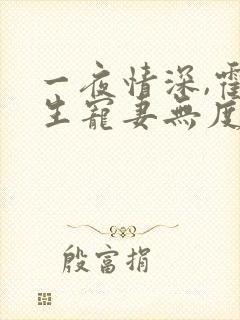 一夜情深,霍
生寵妻無度
殷富捐